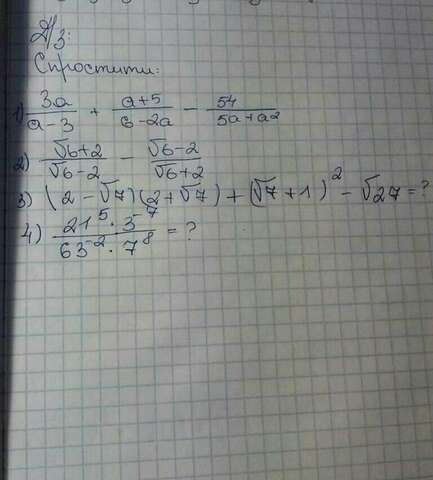 Д/з:
Спростити:
1) 3a/(a-3) + (a+5)/(6-2a) - 54/(5a+a2)
2) (√6+2)/(√6-2) - (√6-2)/(√6+2)
3) (2-√7)(2+√7)+(√7+1)² - √27=?
4) (21⁵·3⁻⁷)/(63⁻²·7⁸) = ?